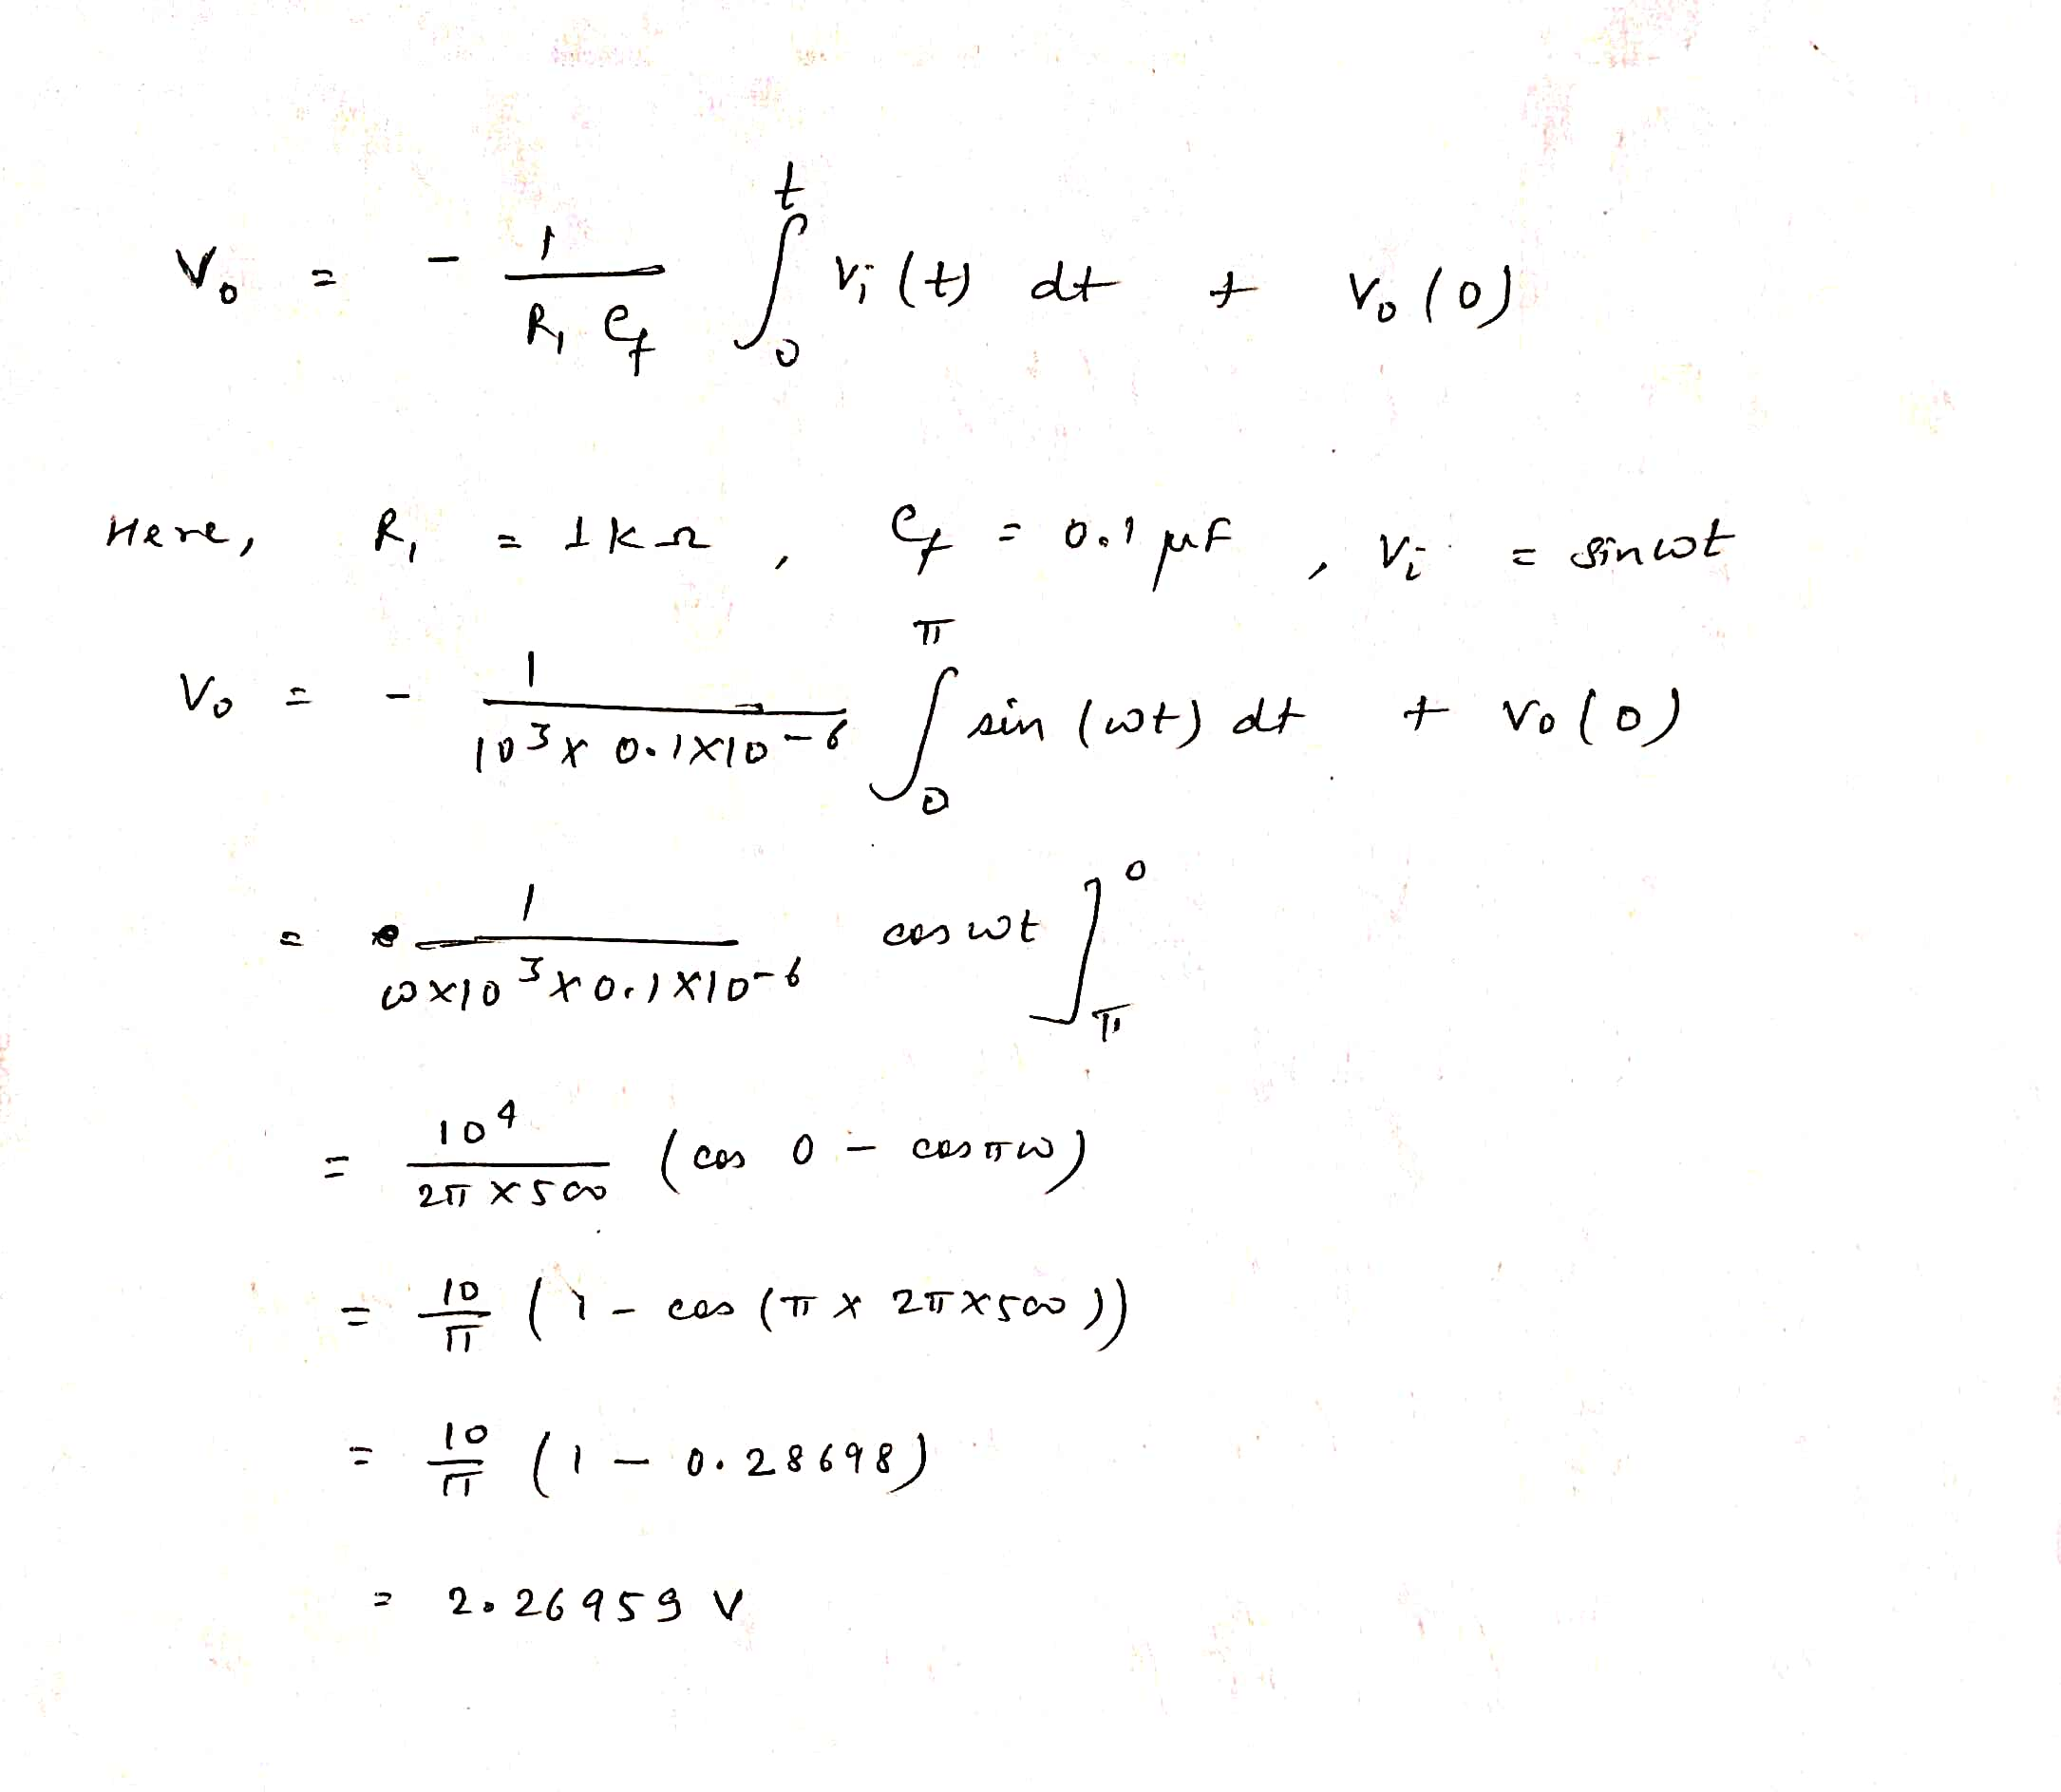 V₀ = - 1/(R₁ C_f) ∫₀ᵗ Vᵢ(t) dt + V₀(0)
Here, R₁ = 1kΩ , C_f = 0.1 μF , Vᵢ = sinωt
V₀ = - 1/(10³ x 0.1x10⁻⁶) ∫₀^π sin (ωt) dt + V₀(0)
= 1/(ωx10³x0.1x10⁻⁶) cosωt]_π^0
= 10⁴/(2π x 500) (cos 0 - cosπω)
= 10/π (1 - cos (π x 2πx500))
= 10/π (1 - 0.28698)
= 2.26959 V